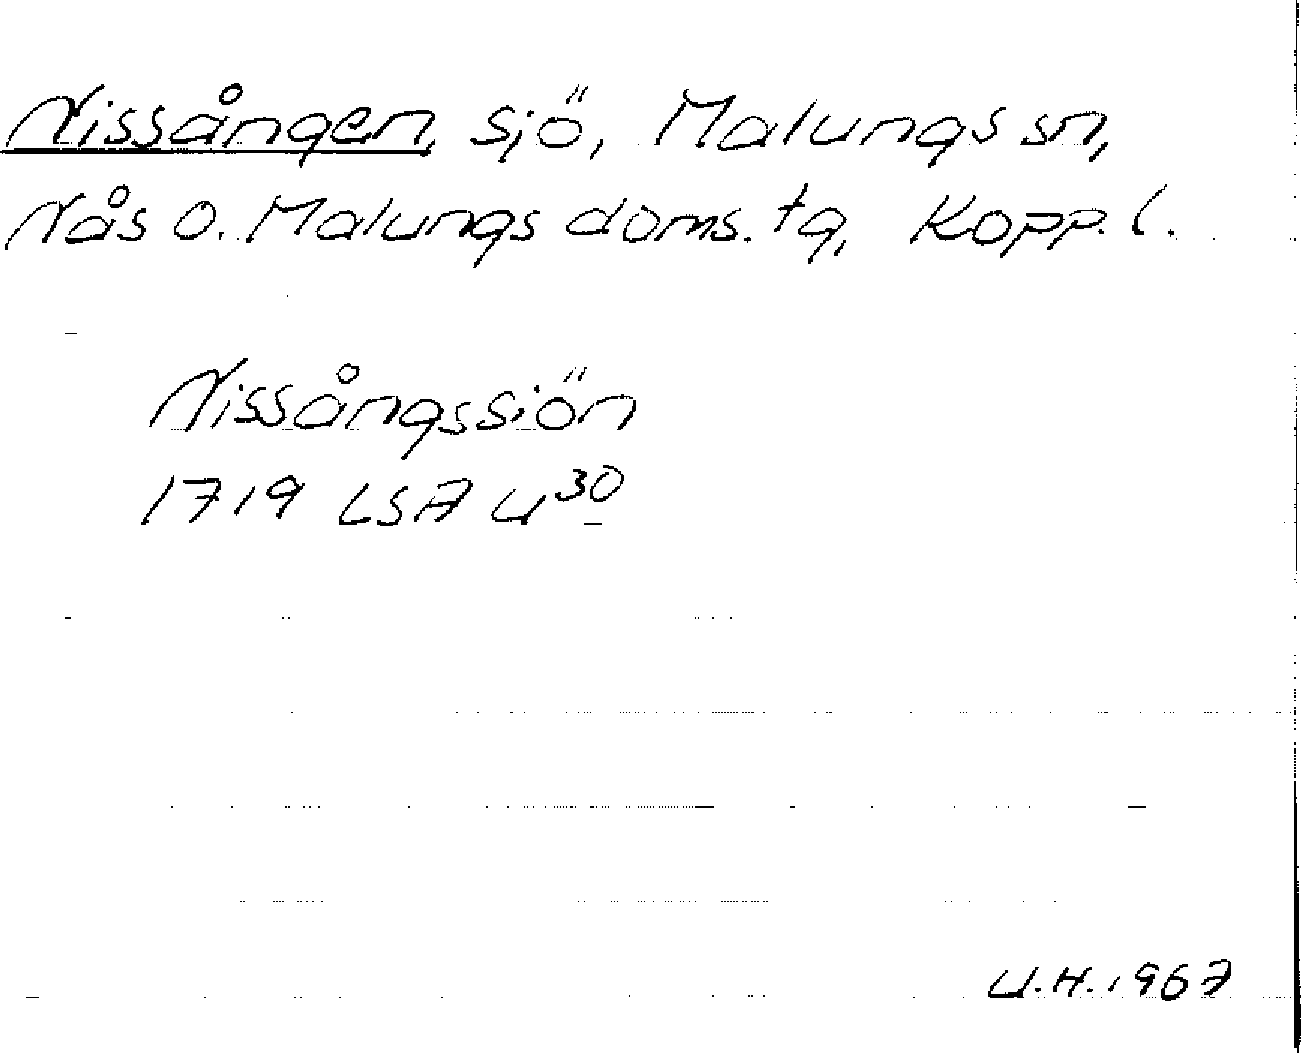 Nissången, sjö, Malungs sn,
Nås o. Malungs doms. tg, Kopp. l.
Nissångssiön
1719 LSA U³⁰
U.H. 1967